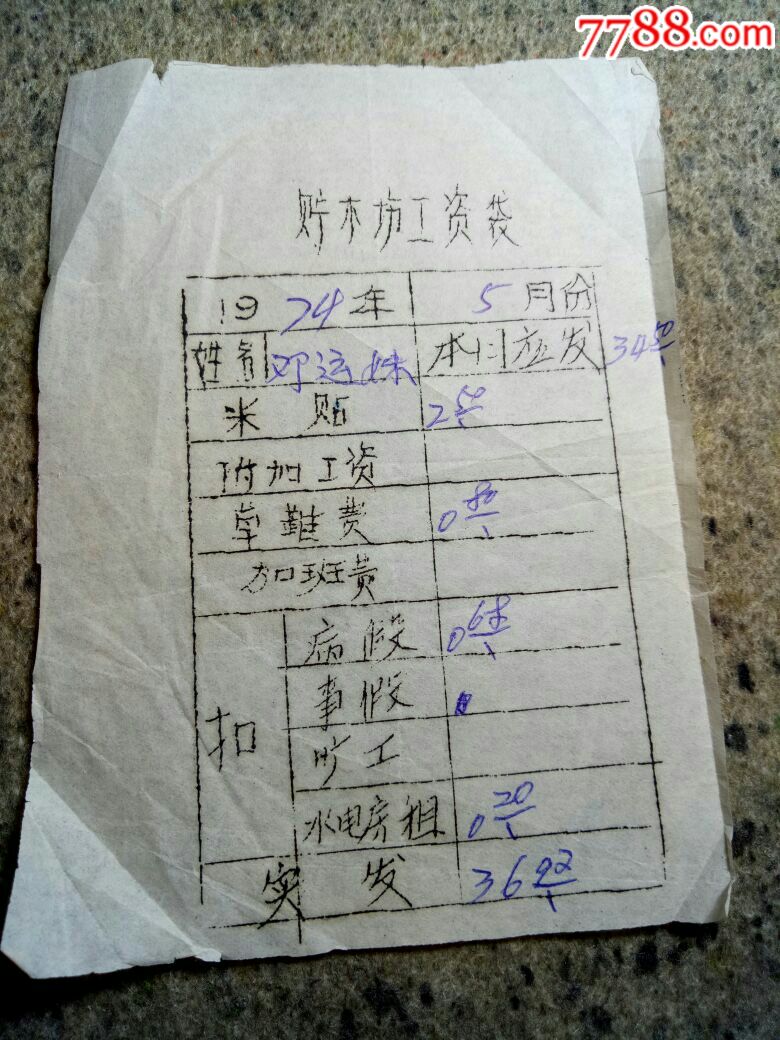 7788.com
贮木场工资袋
1974年 5月份
姓名 邓运妹 本月应发 34.50
米贴 2.50
附加工资
单鞋费 0.80
加班费
扣
病假 0.68
事假
旷工
水电房租 0.20
实发 36.92